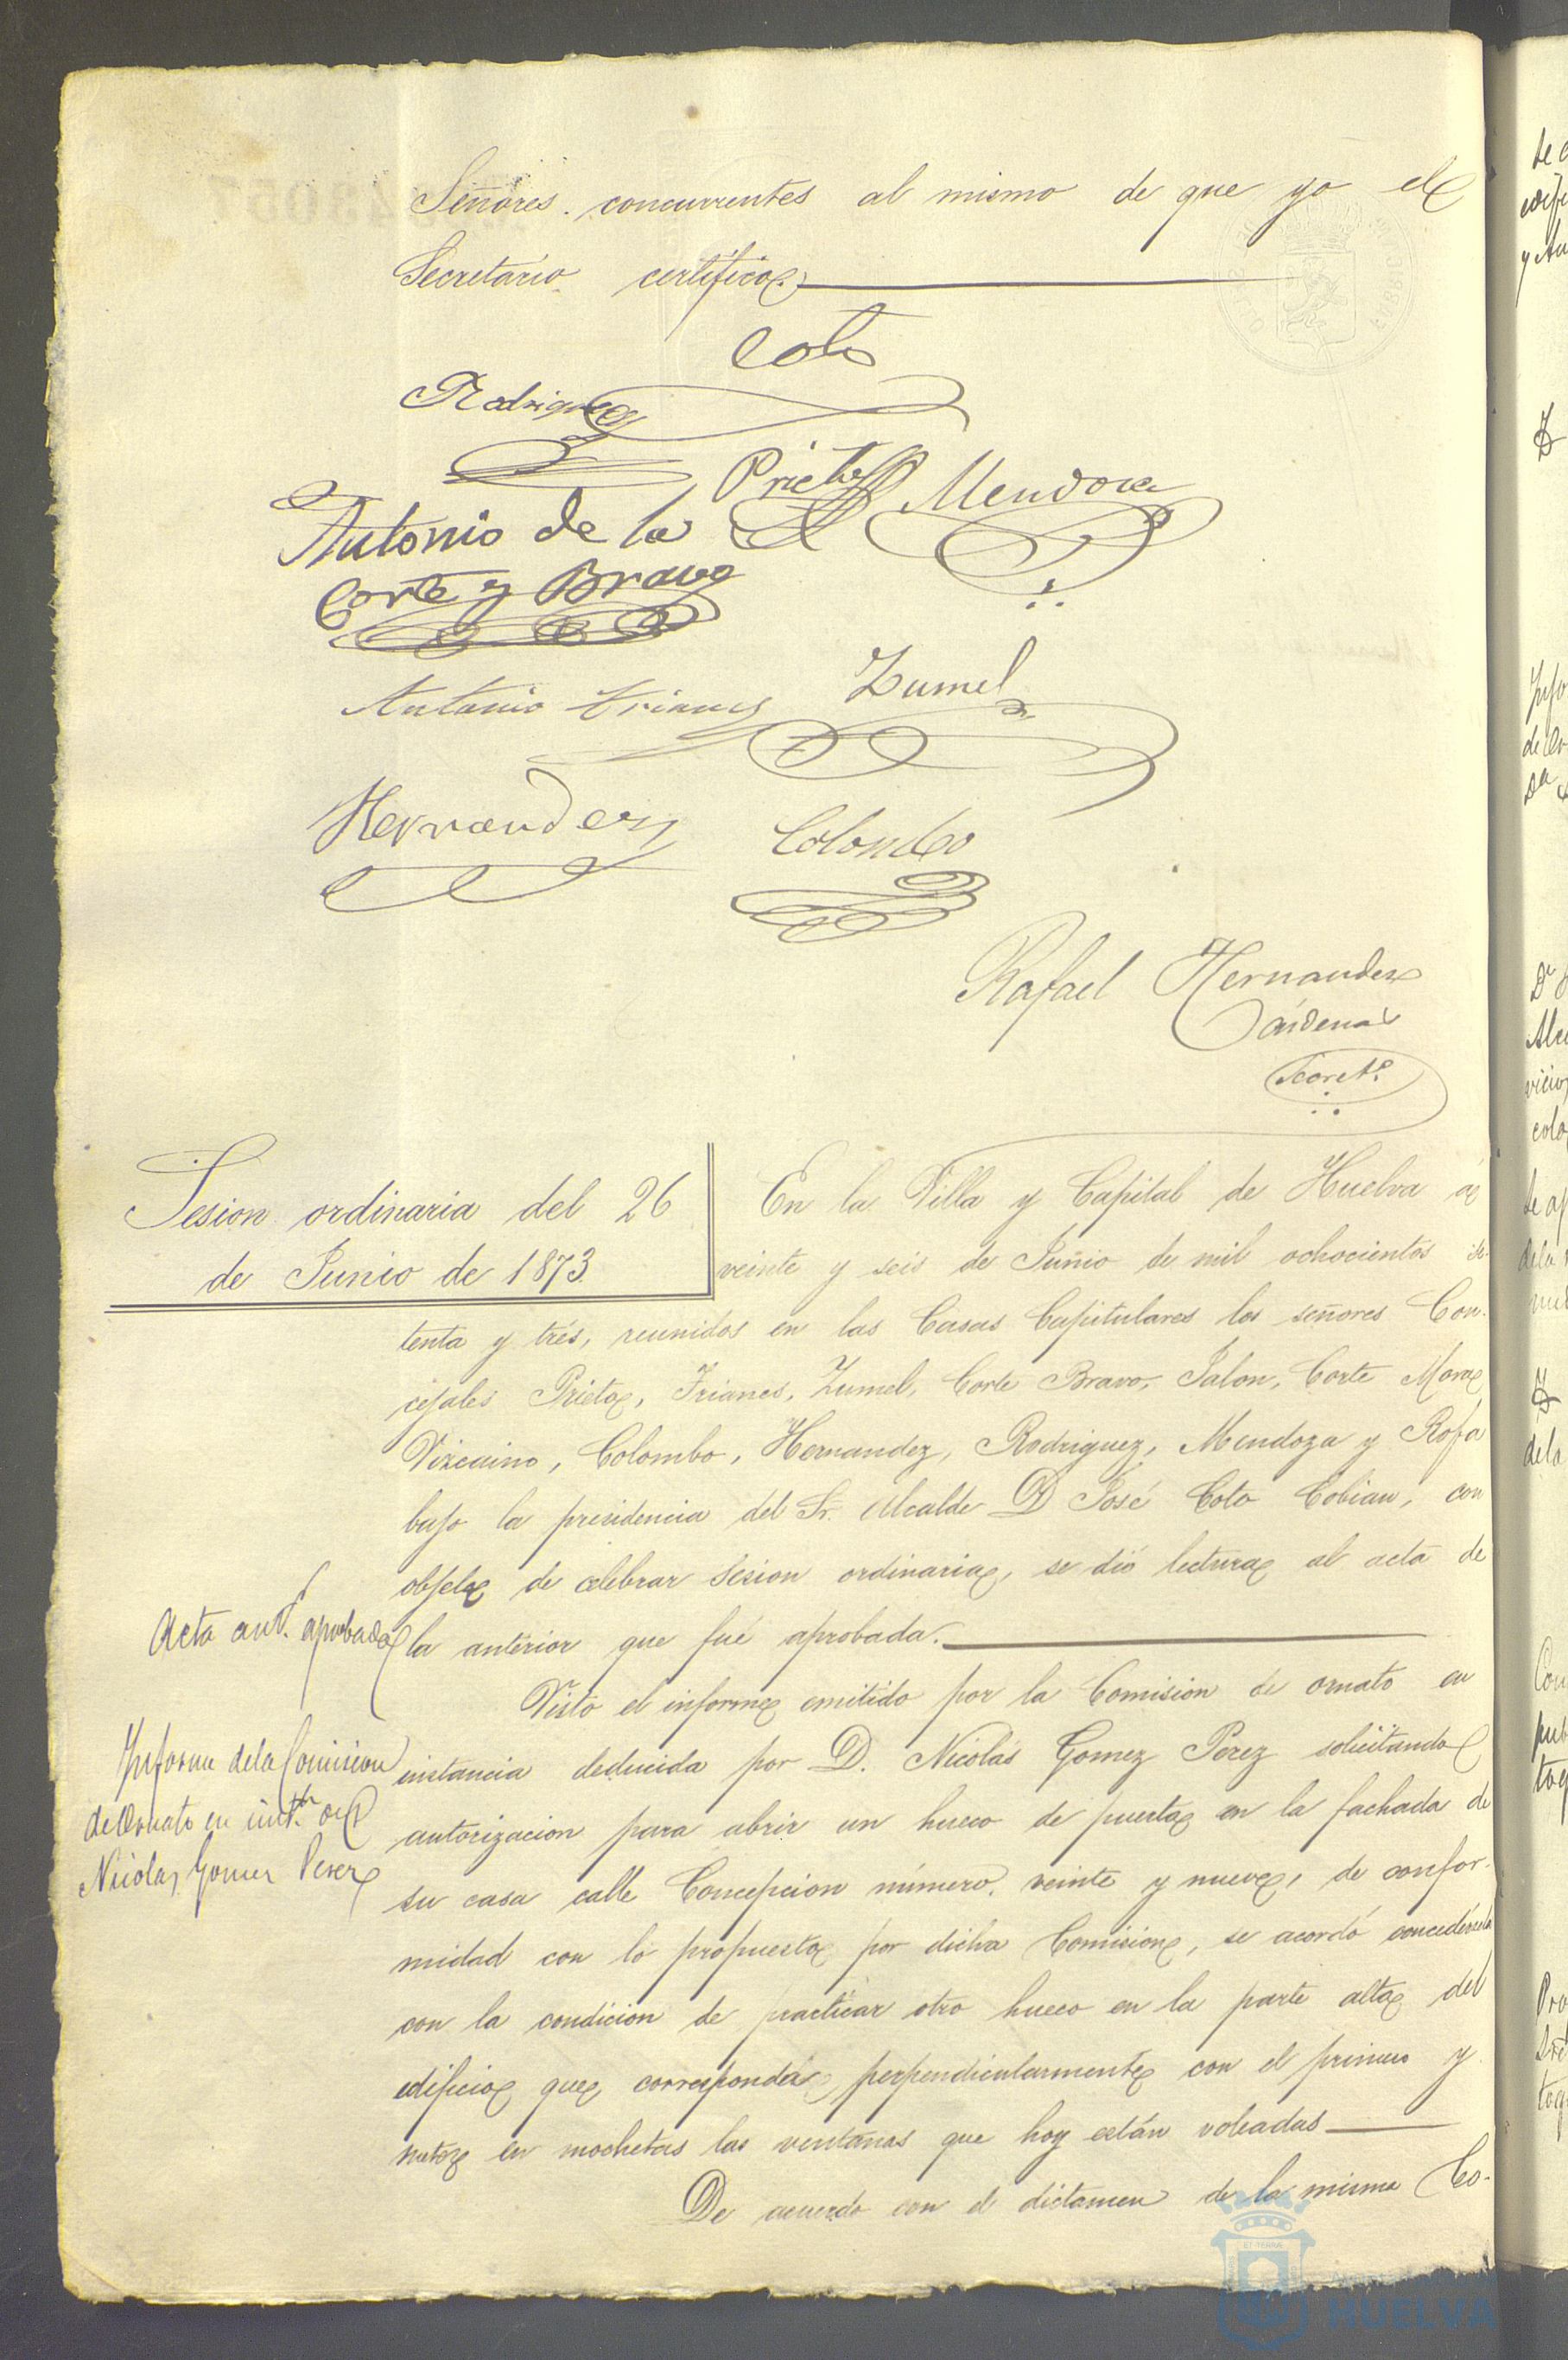 Señores concurrentes al mismo de que yo el
Secretario certifico.
Coto
Rodriguez
Prieto Mendoza
Antonio de la
Corte y Bravo
Antonio Trianes Zumel
Hernandez Colombo
Rafael Hernandez
Cárdenas
Secretº.
Sesion ordinaria del 26
de Junio de 1873
En la Villa y Capital de Huelva á
veinte y seis de Junio de mil ochocientos se-
tenta y trés, reunidos en las Casas Capitulares los señores Con-
cejales Prieto, Trianes, Zumel, Corte Bravo, Jalon, Corte Mora
Vizcaino, Colombo, Hernandez, Rodriguez, Mendoza y Rofa
bajo la presidencia del Sr. Alcalde D José Coto Cobian, con
objeto de celebrar Sesion ordinaria, se dió lectura al acta de
Acta antr. aprobada
la anterior que fué aprobada.
Visto el informe emitido por la Comision de ornato en
Informe de la Comision
de Ornato en instª. de
Nicolas Gomez Perez
instancia deducida por D. Nicolás Gomez Perez solicitando
autorizacion para abrir un hueco de puerta en la fachada de
su casa calle Concepcion número veinte y nueve, de confor-
midad con lo propuesto por dicha Comision, se acordó concedérsela
con la condicion de practicar otro hueco en la parte alta del
edificio que corresponda perpendicularmente con el primero y
meter en mochetas las ventanas que hoy están voleadas
De acuerdo con el dictamen de la misma Co-
HUELVA